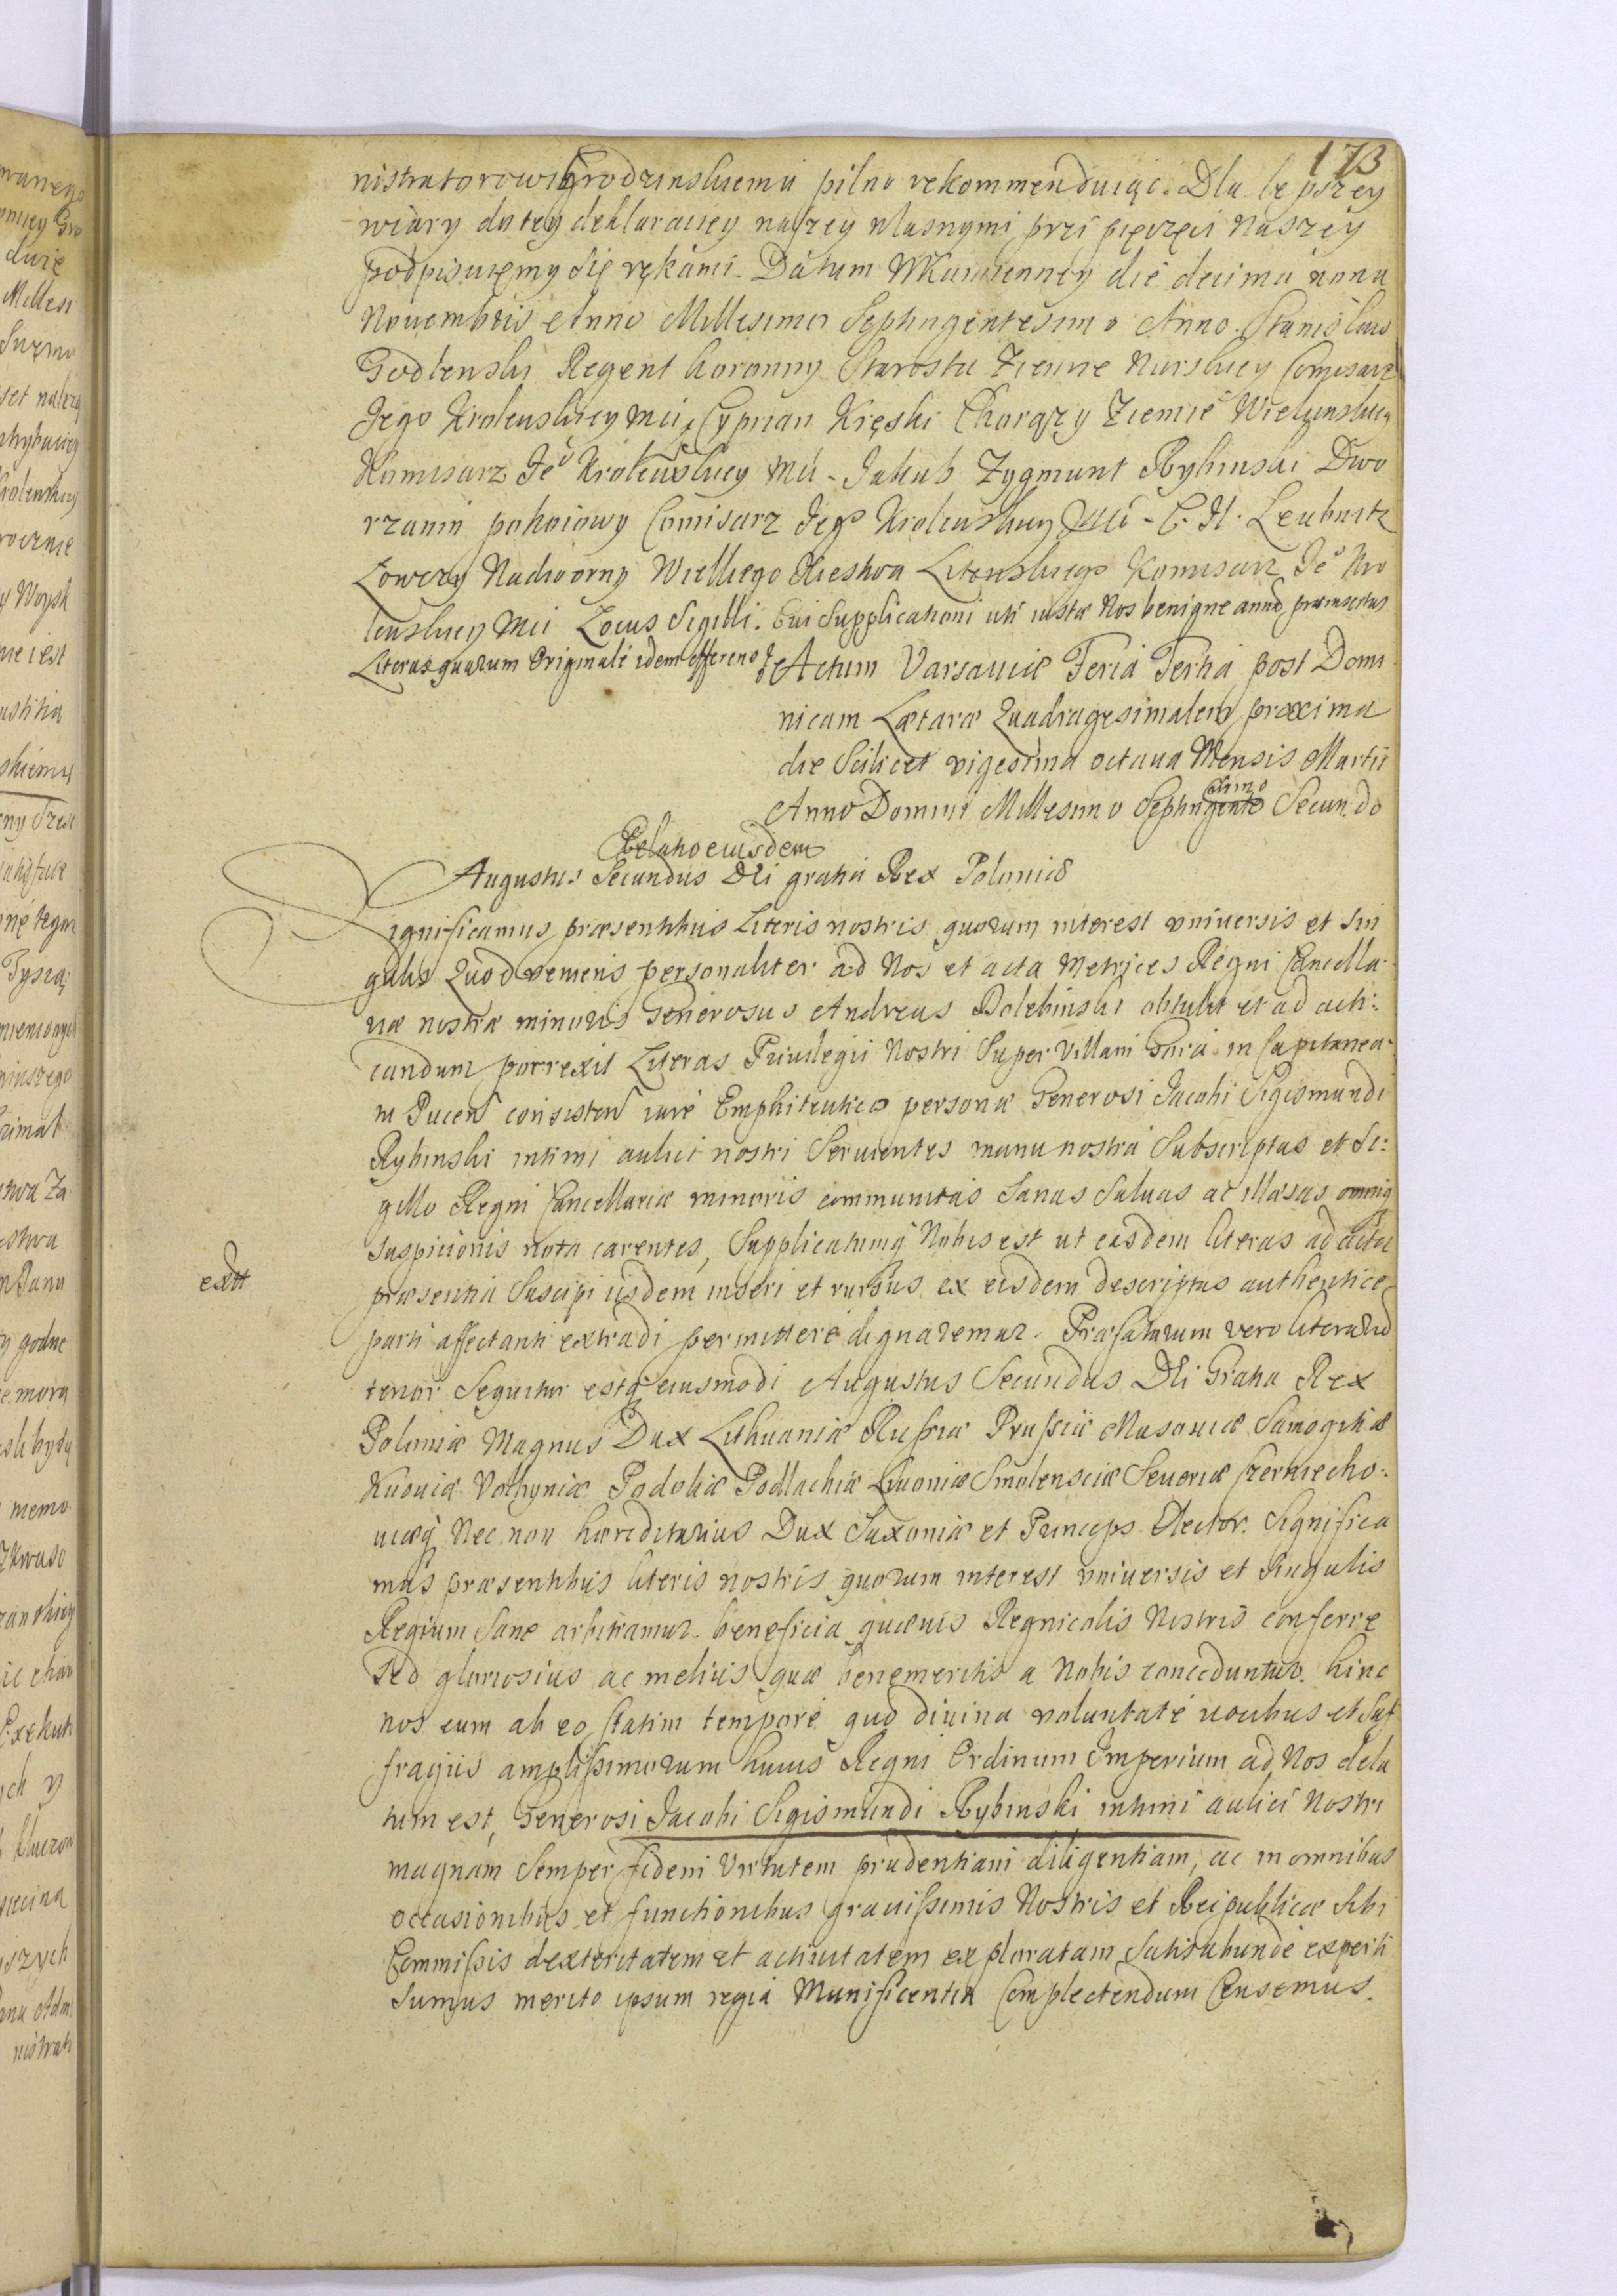 173
nistratorowi Grodzinskiemu pilno rekommenduiąc. Dla lepszey
wiary da tey deklaraciey naszey własnymi przi pięczęci Naszey
podpisuięmy się rękami. Datum WKamienney die decima nona
Nouembris Anno Millesimo Septingentesimo Anno. Stanisław
Godlenski Regent koronny Starosta Ziemie Nurskiey Comisarz
Jego Krolewskiey Mci, Cyprian Kręski Chorązy Ziemie Wielunskiey
Komisarz Je° Krolewskiey Mci - Jakub Zygmunt Rybinski Dwo
rzanin pokoiowy Comisarz Jego Krolewskiey Mci - C. H. Leubnitz
Łowczy Nadworny Wielkiego Xiestwa Litewskiego Komisarz Je° Kro
lewskiey Mci Locus Sigilli. Cui Supplicationi uti iustæ Nos benigne annd præinsertas
Literas quarum Originale idem offerens
Actum Varsauiæ Feria Tertia post Domi
nicam Lætaræ Quadragesimalem proxima
die Scilicet vigesima octaua Mensis Martii
Anno Domini Millesimo Septingento Secundo
Relatio eiusdem
Augustus Secundus Dei gratia Rex Poloniæ
Significamus præsentibus Literis nostris quorum interest vniuersis et Sin
gulis Quod veniens personaliter ad Nos et acta Metrices Regni Cancella
riæ nostræ minoris Generosus Andreas Dolebinski obtulit et ad acti:
candum porrexit Literas Priuilegii Nostri Super Villam in Capitanea
tu Pucen consisten iure Emphiteutico personæ Generosi Jacobi Sigismundi
Rybinski intimi aulici nostri Seruientes manu nostra Subscriptas et Si:
gillo Regni Cancellariæ minoris communitas Sanas Saluas ac illæsas omniq
Suspicionis nota carentes, Supplicatumq Nobis est ut easdem literas ad acta
præsentia Suscipi iisdem inseri et rursus ex eisdem descriptas authentice
parti affectanti extradi permittere dignaremur. Præfatarum vero literarum
extt
tenor Sequitur estq eiusmodi Augustus Secundus Dei Gratia Rex
Poloniæ Magnus Dux Lithuaniæ Russiæ Prussiæ Masouiæ Samogitiæ
Kuouiæ Volhyniæ Podoliæ Podlachiæ Liuoniæ Smolensciæ Seueriæ Czerniecho:
uiæq Nec non hæreditarius Dux Saxoniæ et Princeps Elector. Significa
mus præsentibus literis nostris quorum interest vniuersis et Singulis
Regium Sane arbitramur beneficia quæuis Regnicolis Nostris conferre
Sed gloriosius ac melius quæ benemeritis a Nobis conceduntur. hinc
nos cum ab eo statim tempore quo diuina voluntate uocibus et Suf
fragiis amplissimorum huius Regni Ordinum Imperium ad Nos dela
tum est, Generosi Jacobi Sigismundi Rybinski intimi aulici Nostri
magnam Semper fidem Virtutem prudentiam diligentiam, ac in omnibus
occasionibus et functionibus grauissimis Nostris et Reipublicæ Sibi
Commissis dexteritatem et actiuitatem exploratam Satis abunde experti
Sumus merito ipsum regia Munificentia Complectendum Censemus.